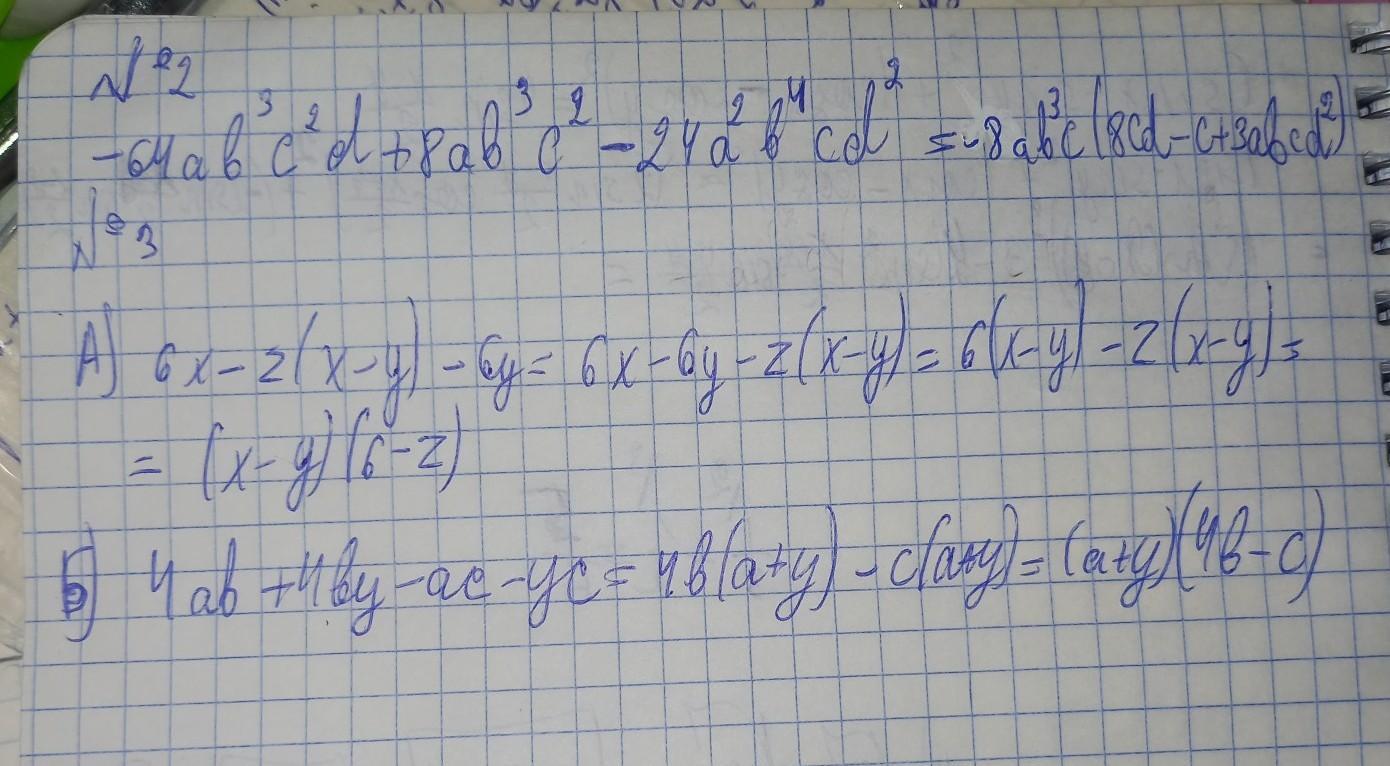 №2
-64ab³c²d+8ab³c²-24a²b⁴cd²=-8ab³c(8cd-c+3abcd²)
№3
А) 6x-z(x-y)-6y=6x-6y-z(x-y)=6(x-y)-z(x-y)=
=(x-y)(6-z)
Б) 4ab+4by-ac-yc=4b(a+y)-c(a+y)=(a+y)(4b-c)